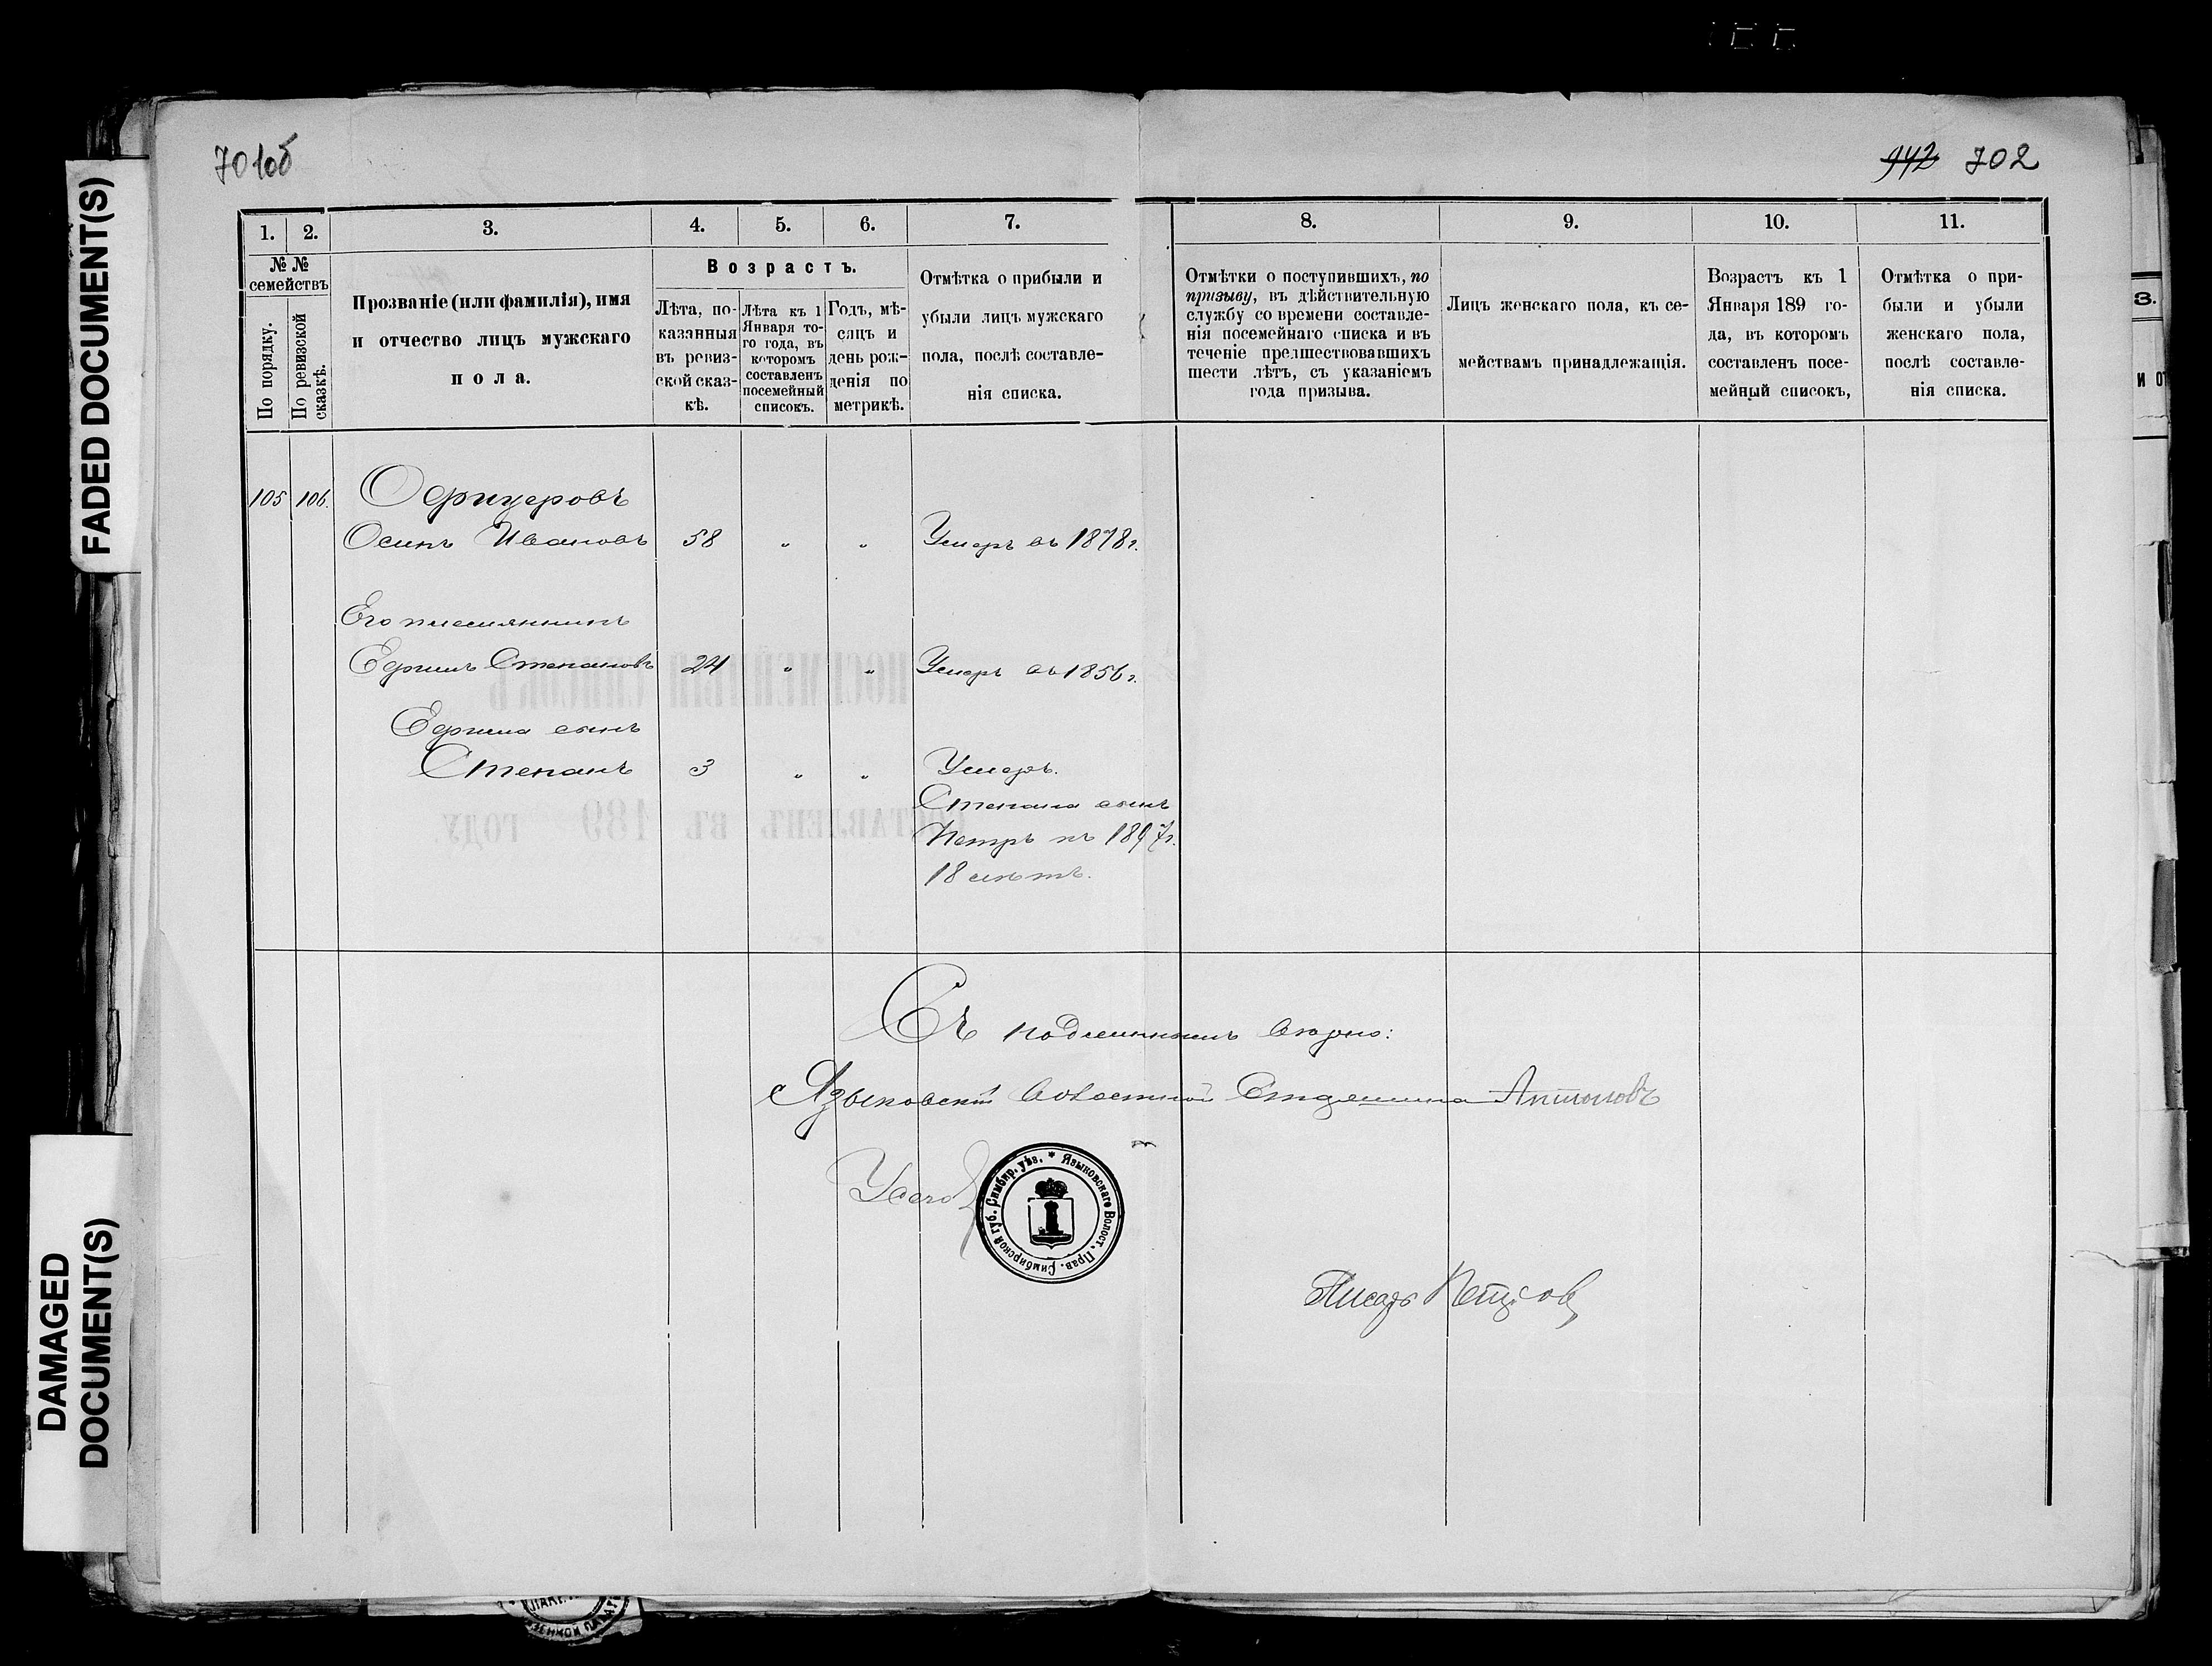 FADED DOCUMENT(S)
DAMAGED
DOCUMENT(S)
701об
942 702
1. 2. 3. 4. 5. 6. 7. 8. 9. 10. 11.
№ №
семействъ
По порядку.
По ревизской
сказкѣ.
Прозваніе (или фамилія), имя
и отчество лицъ мужскаго
пола.
Возрастъ.
Лѣта, по-
казанныя
въ ревиз-
ской сказ-
кѣ.
Лѣта къ 1
Января то-
го года, въ
которомъ
составленъ
посемейный
списокъ.
Годъ, мѣ-
сяцъ и
день рож-
денія по
метрикѣ.
Отмѣтка о прибыли и
убыли лицъ мужскаго
пола, послѣ составле-
нія списка.
Отмѣтки о поступившихъ, по
призыву, въ дѣйствительную
службу со времени составле-
нія посемейнаго списка и въ
теченіе предшествовавшихъ
шести лѣтъ, съ указаніемъ
года призыва.
Лицъ женскаго пола, къ се-
мействамъ принадлежащія.
Возрастъ къ 1
Января 189 го-
да, въ которомъ
составленъ посе-
мейный списокъ,
Отмѣтка о при-
были и убыли
женскаго пола,
послѣ составле-
нія списка.
105 106. Офицеровъ
Осипъ Ивановъ 58 " " Умеръ въ 1878 г.
Его племянникъ
Ефимъ Степановъ 24 " " Умеръ въ 1856 г.
Ефима сынъ
Степанъ 3 " " Умеръ.
Степана сынъ
Петръ къ 1897 г.
18 лѣтъ.
Съ подлиннымъ вѣрно:
Языковскій Волостной Старшина Антоновъ
* Языковскаго Волост. Прав. Симбирской губ. Симбир. уѣз.
Писарь Петров
З.
и от